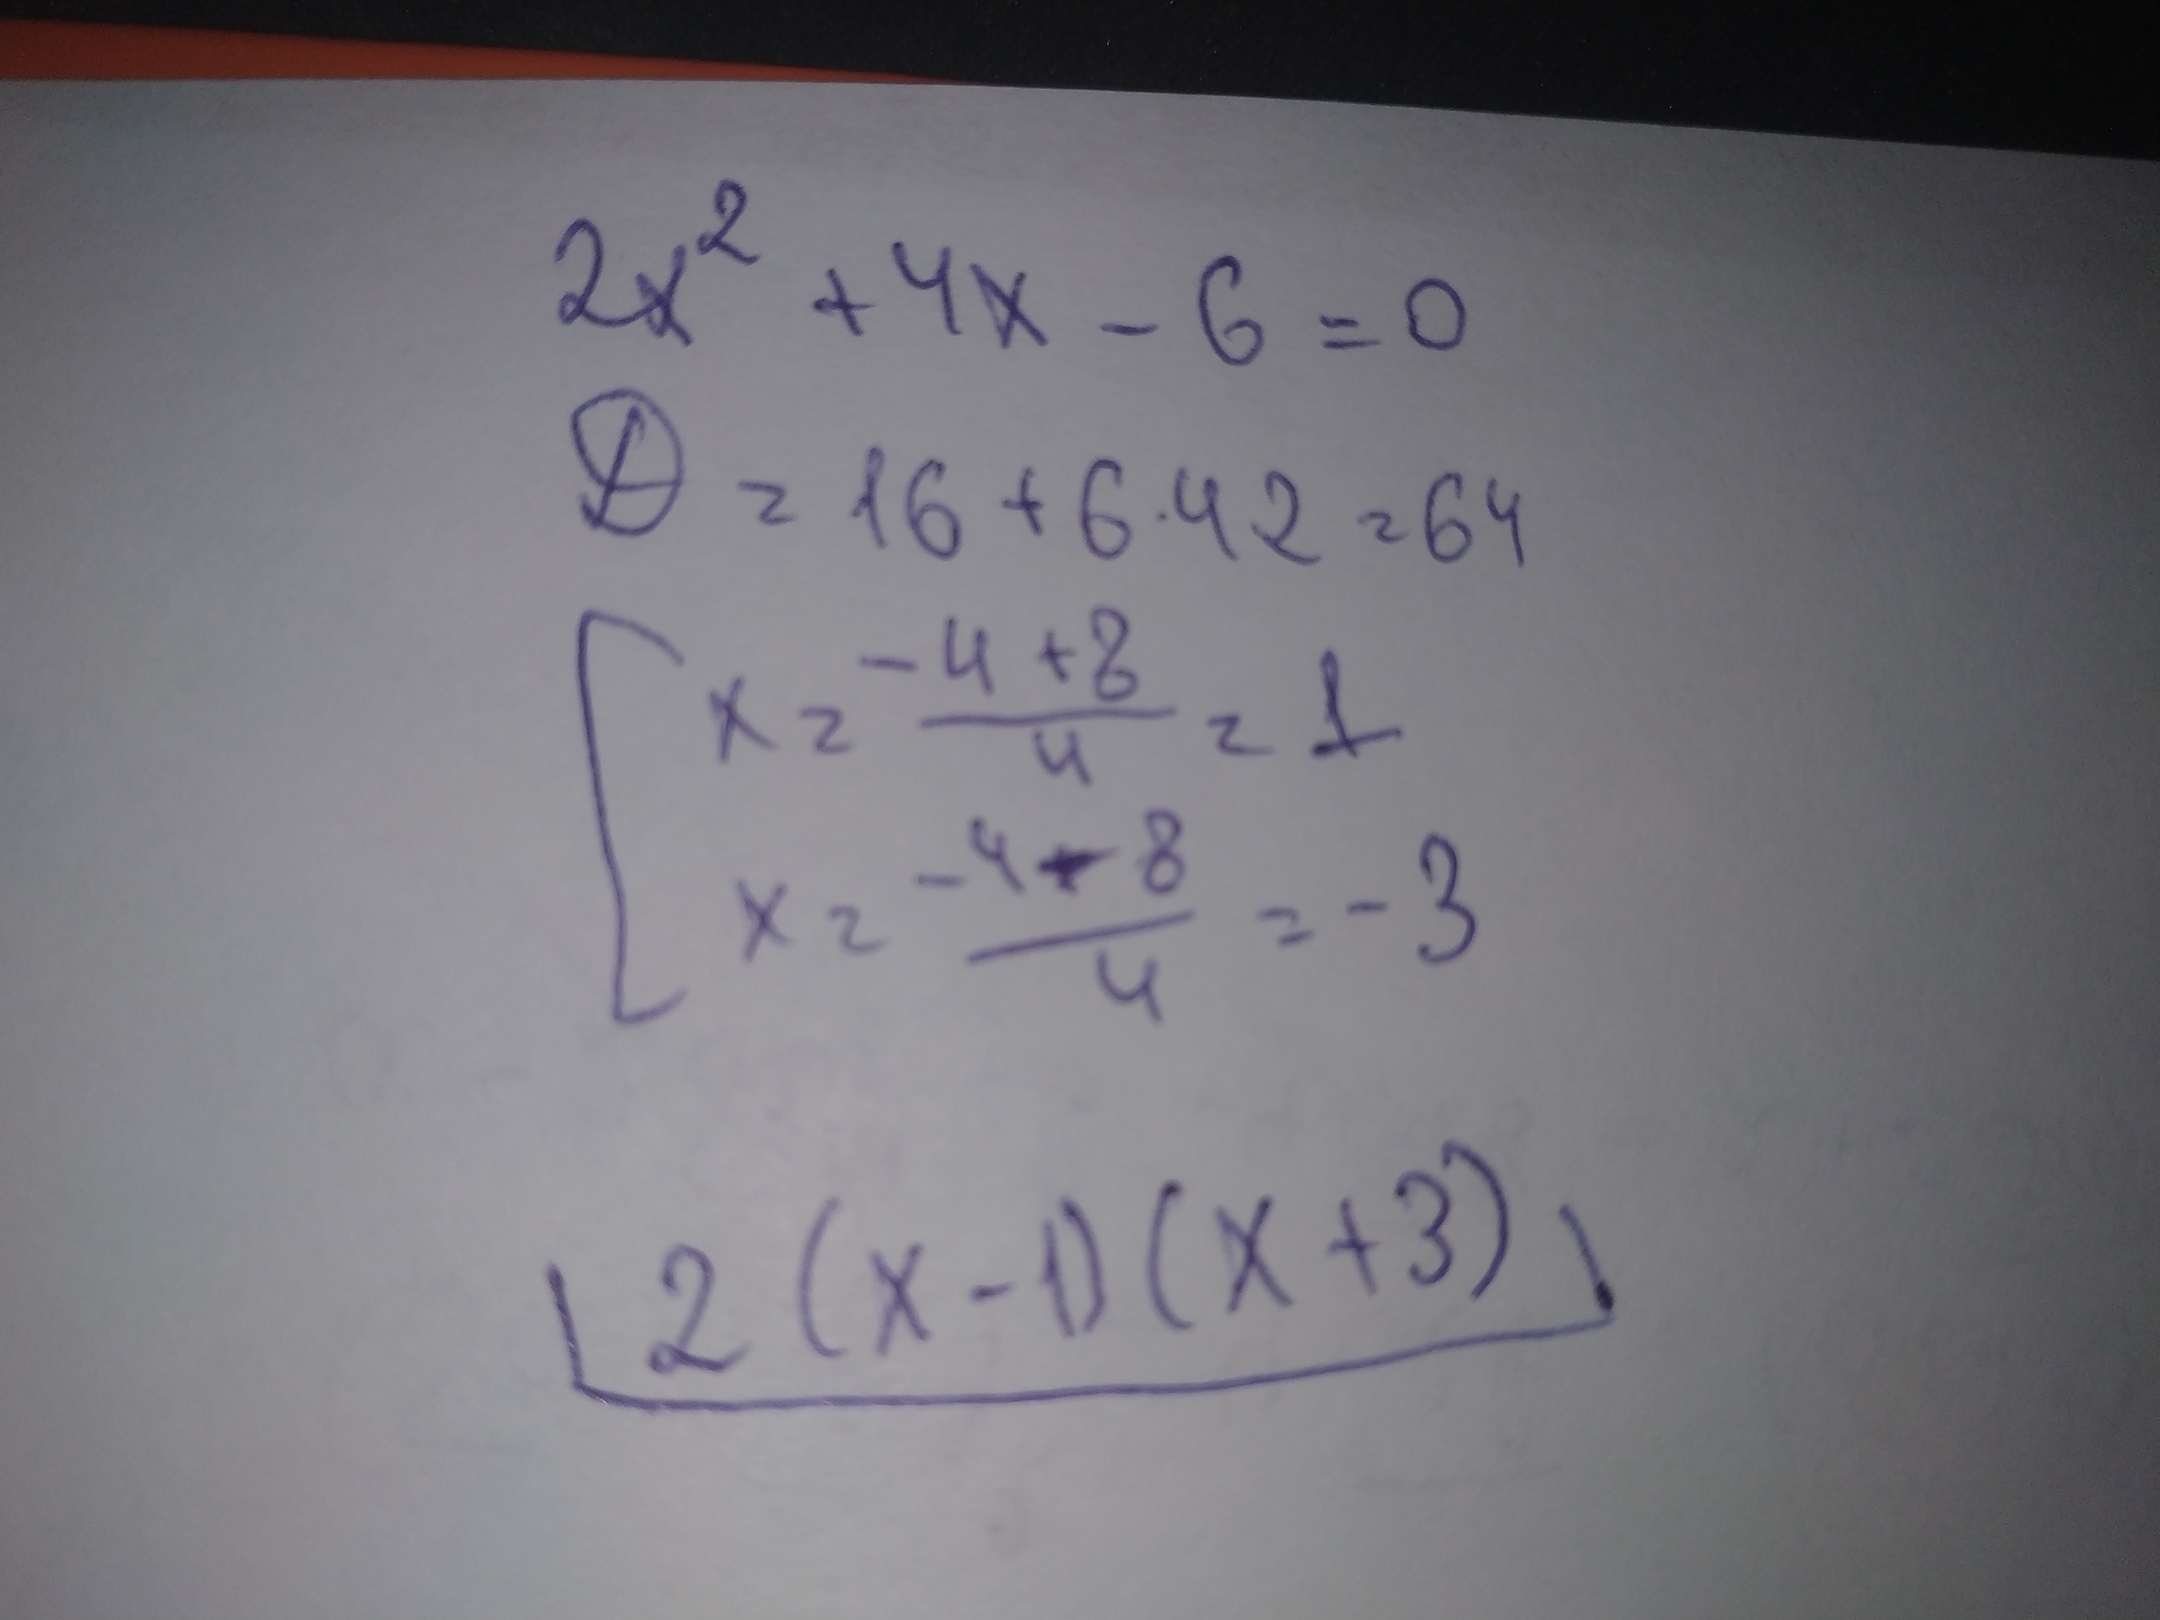 2x² + 4x - 6 = 0
D = 16 + 6·42 = 64
x = -4 + 8 / 4 = 1
x = -4 - 8 / 4 = -3
2 (x - 1) (x + 3)